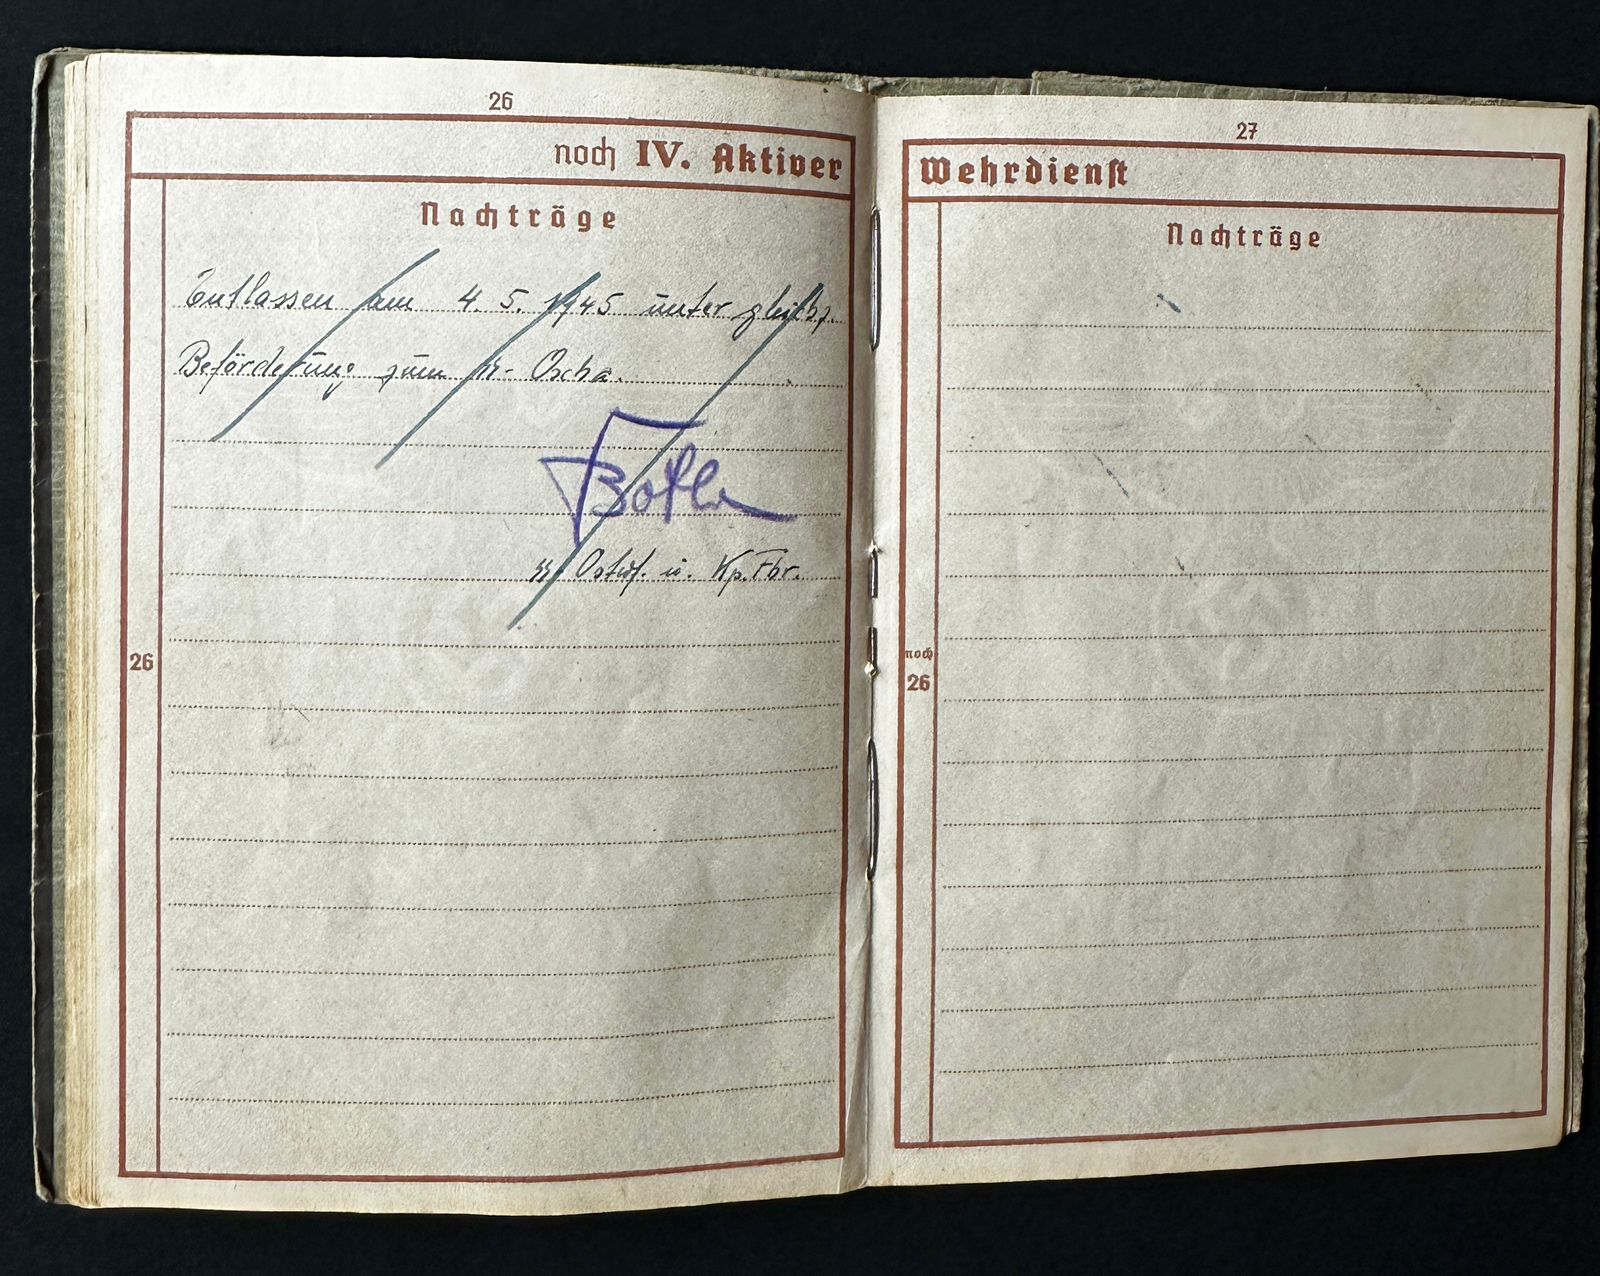 26
noch IV. Aktiver
Nachträge
Entlassen am 4. 5. 1945 unter gleichz.
Beförderung zum SS- Oscha.
SS Ostuf. u. Kp. Fhr.
26
27
Wehrdienst
Nachträge
noch
26